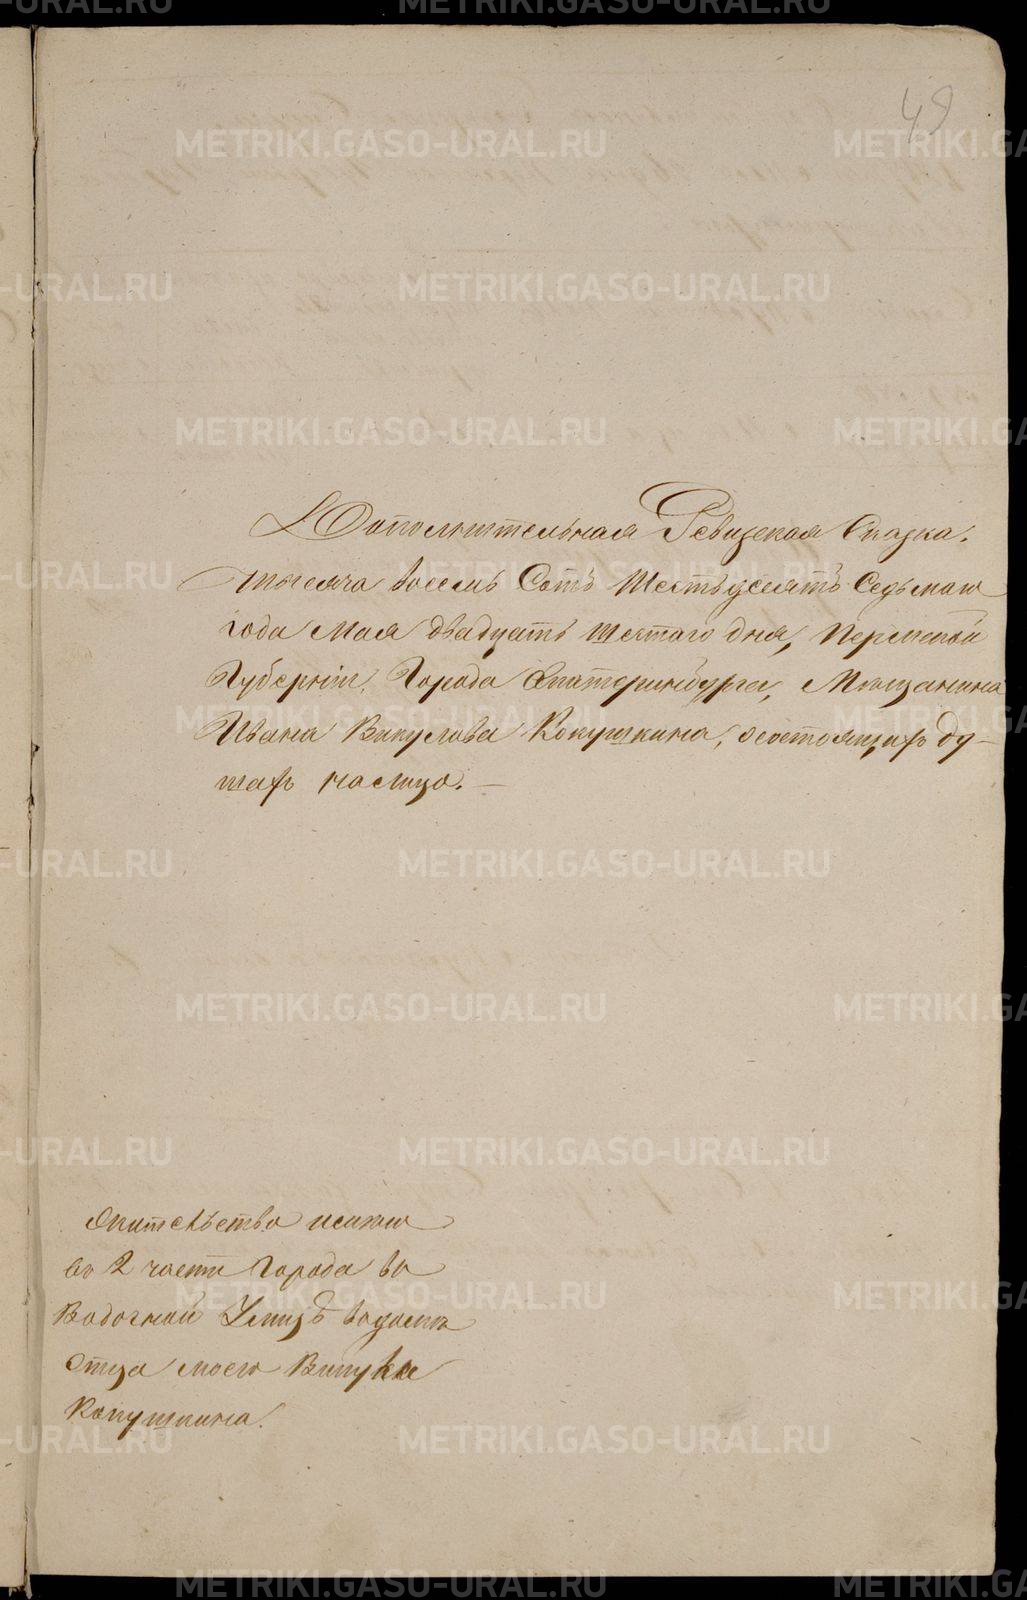 49
Дополнительная Ревизская Сказка.
Тысяча восемь Сотъ Шестьдесятъ Седьмаго
года Мая двадцать шестаго дня, Пермской
Губерніи, Города Екатеринбурга, Мѣщанина
Ивана Викулова Кокушкина, о состоящихъ ду-
шахъ налицо. —
Жительство имѣю
во 2 части Города въ
Водочной Улицѣ въ домѣ
Отца моего Викулы
Кокушкина.
METRIKI.GASO-URAL.RU